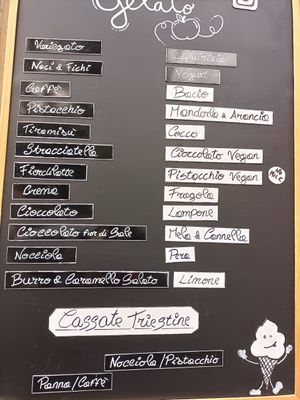 Gelato
Variegato
Noci & Fichi
Caffè
Pistacchio
Tiramisù
Stracciatella
Fiordilatte
Crema
Cioccolato
Cioccolato fior di Sale
Nocciola
Burro & Caramello Salato
Liquirizia
Yogurt
Bacio
Mandorla & Arancia
Cocco
Cioccolato Vegan
Pistacchio Vegan
NO MILK
Fragola
Lampone
Mela & Cannella
Pera
Limone
Cassate Triestine
Nocciola/Pistacchio
Panna/Caffè